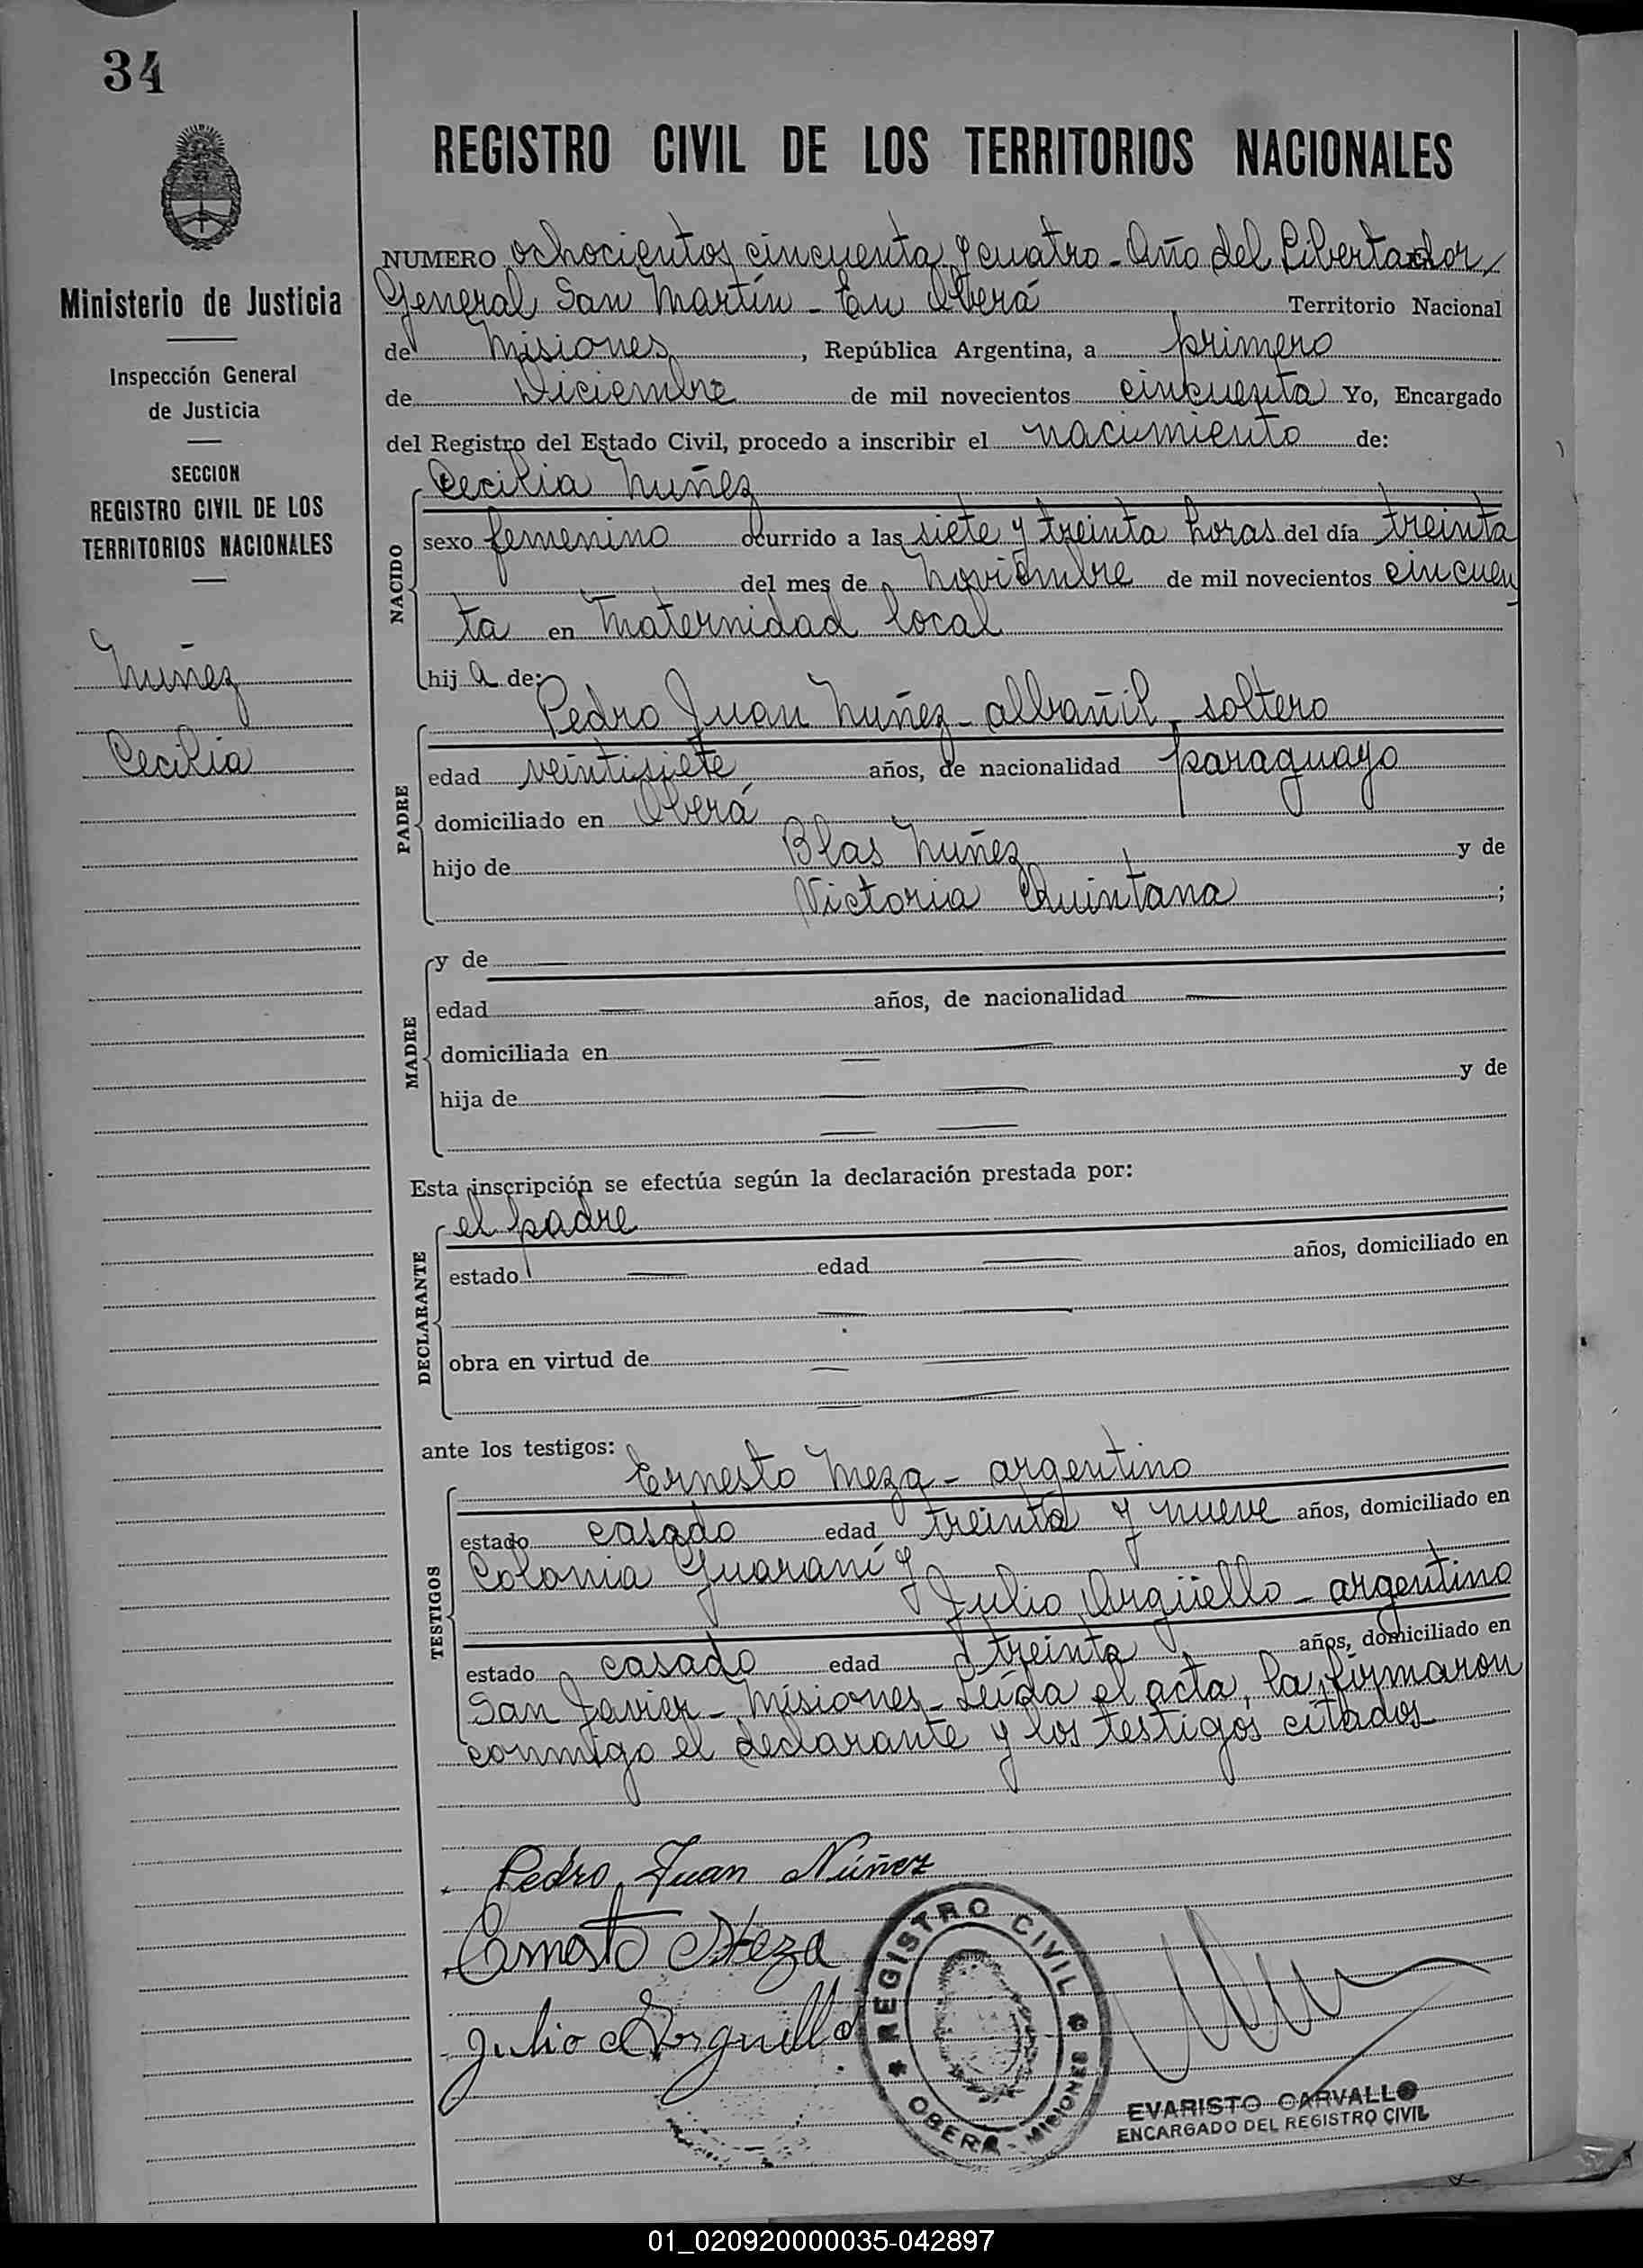 34
REGISTRO CIVIL DE LOS TERRITORIOS NACIONALES
Ministerio de Justicia
Inspección General
de Justicia
SECCION
REGISTRO CIVIL DE LOS
TERRITORIOS NACIONALES
Nuñez
Cecilia
NUMERO ochocientos cincuenta y cuatro - Año del Libertador
General San Martín - En Oberá Territorio Nacional
de Misiones, República Argentina, a primero
de Diciembre de mil novecientos cincuenta Yo, Encargado
del Registro del Estado Civil, procedo a inscribir el nacimiento de:
NACIDO
Cecilia Nuñez
sexo femenino ocurrido a las siete y treinta horas del día treinta
del mes de Noviembre de mil novecientos cincuen
ta en Maternidad local
hij a de:
PADRE
Pedro Juan Nuñez - albañil - soltero
edad veintisiete años, de nacionalidad paraguayo
domiciliado en Oberá
hijo de Blas Nuñez y de
Victoria Quintana ;
MADRE
y de —
edad — años, de nacionalidad —
domiciliada en — —
hija de — — y de
— —
Esta inscripción se efectúa según la declaración prestada por:
DECLARANTE
el padre
estado — edad — años, domiciliado en
— —
obra en virtud de — —
— —
ante los testigos:
TESTIGOS
Ernesto Meza - argentino
estado casado edad treinta y nueve años, domiciliado en
Colonia Guaraní y
Julio Argüello - argentino
estado casado edad treinta años, domiciliado en
San Javier - Misiones - Leída el acta, la firmaron
conmigo el declarante y los testigos citados
Pedro Juan Núñez
Ernesto Meza
Julio Arguello
REGISTRO CIVIL
OBERA - MISIONES
EVARISTO CARVALLO
ENCARGADO DEL REGISTRO CIVIL
01_020920000035-042897